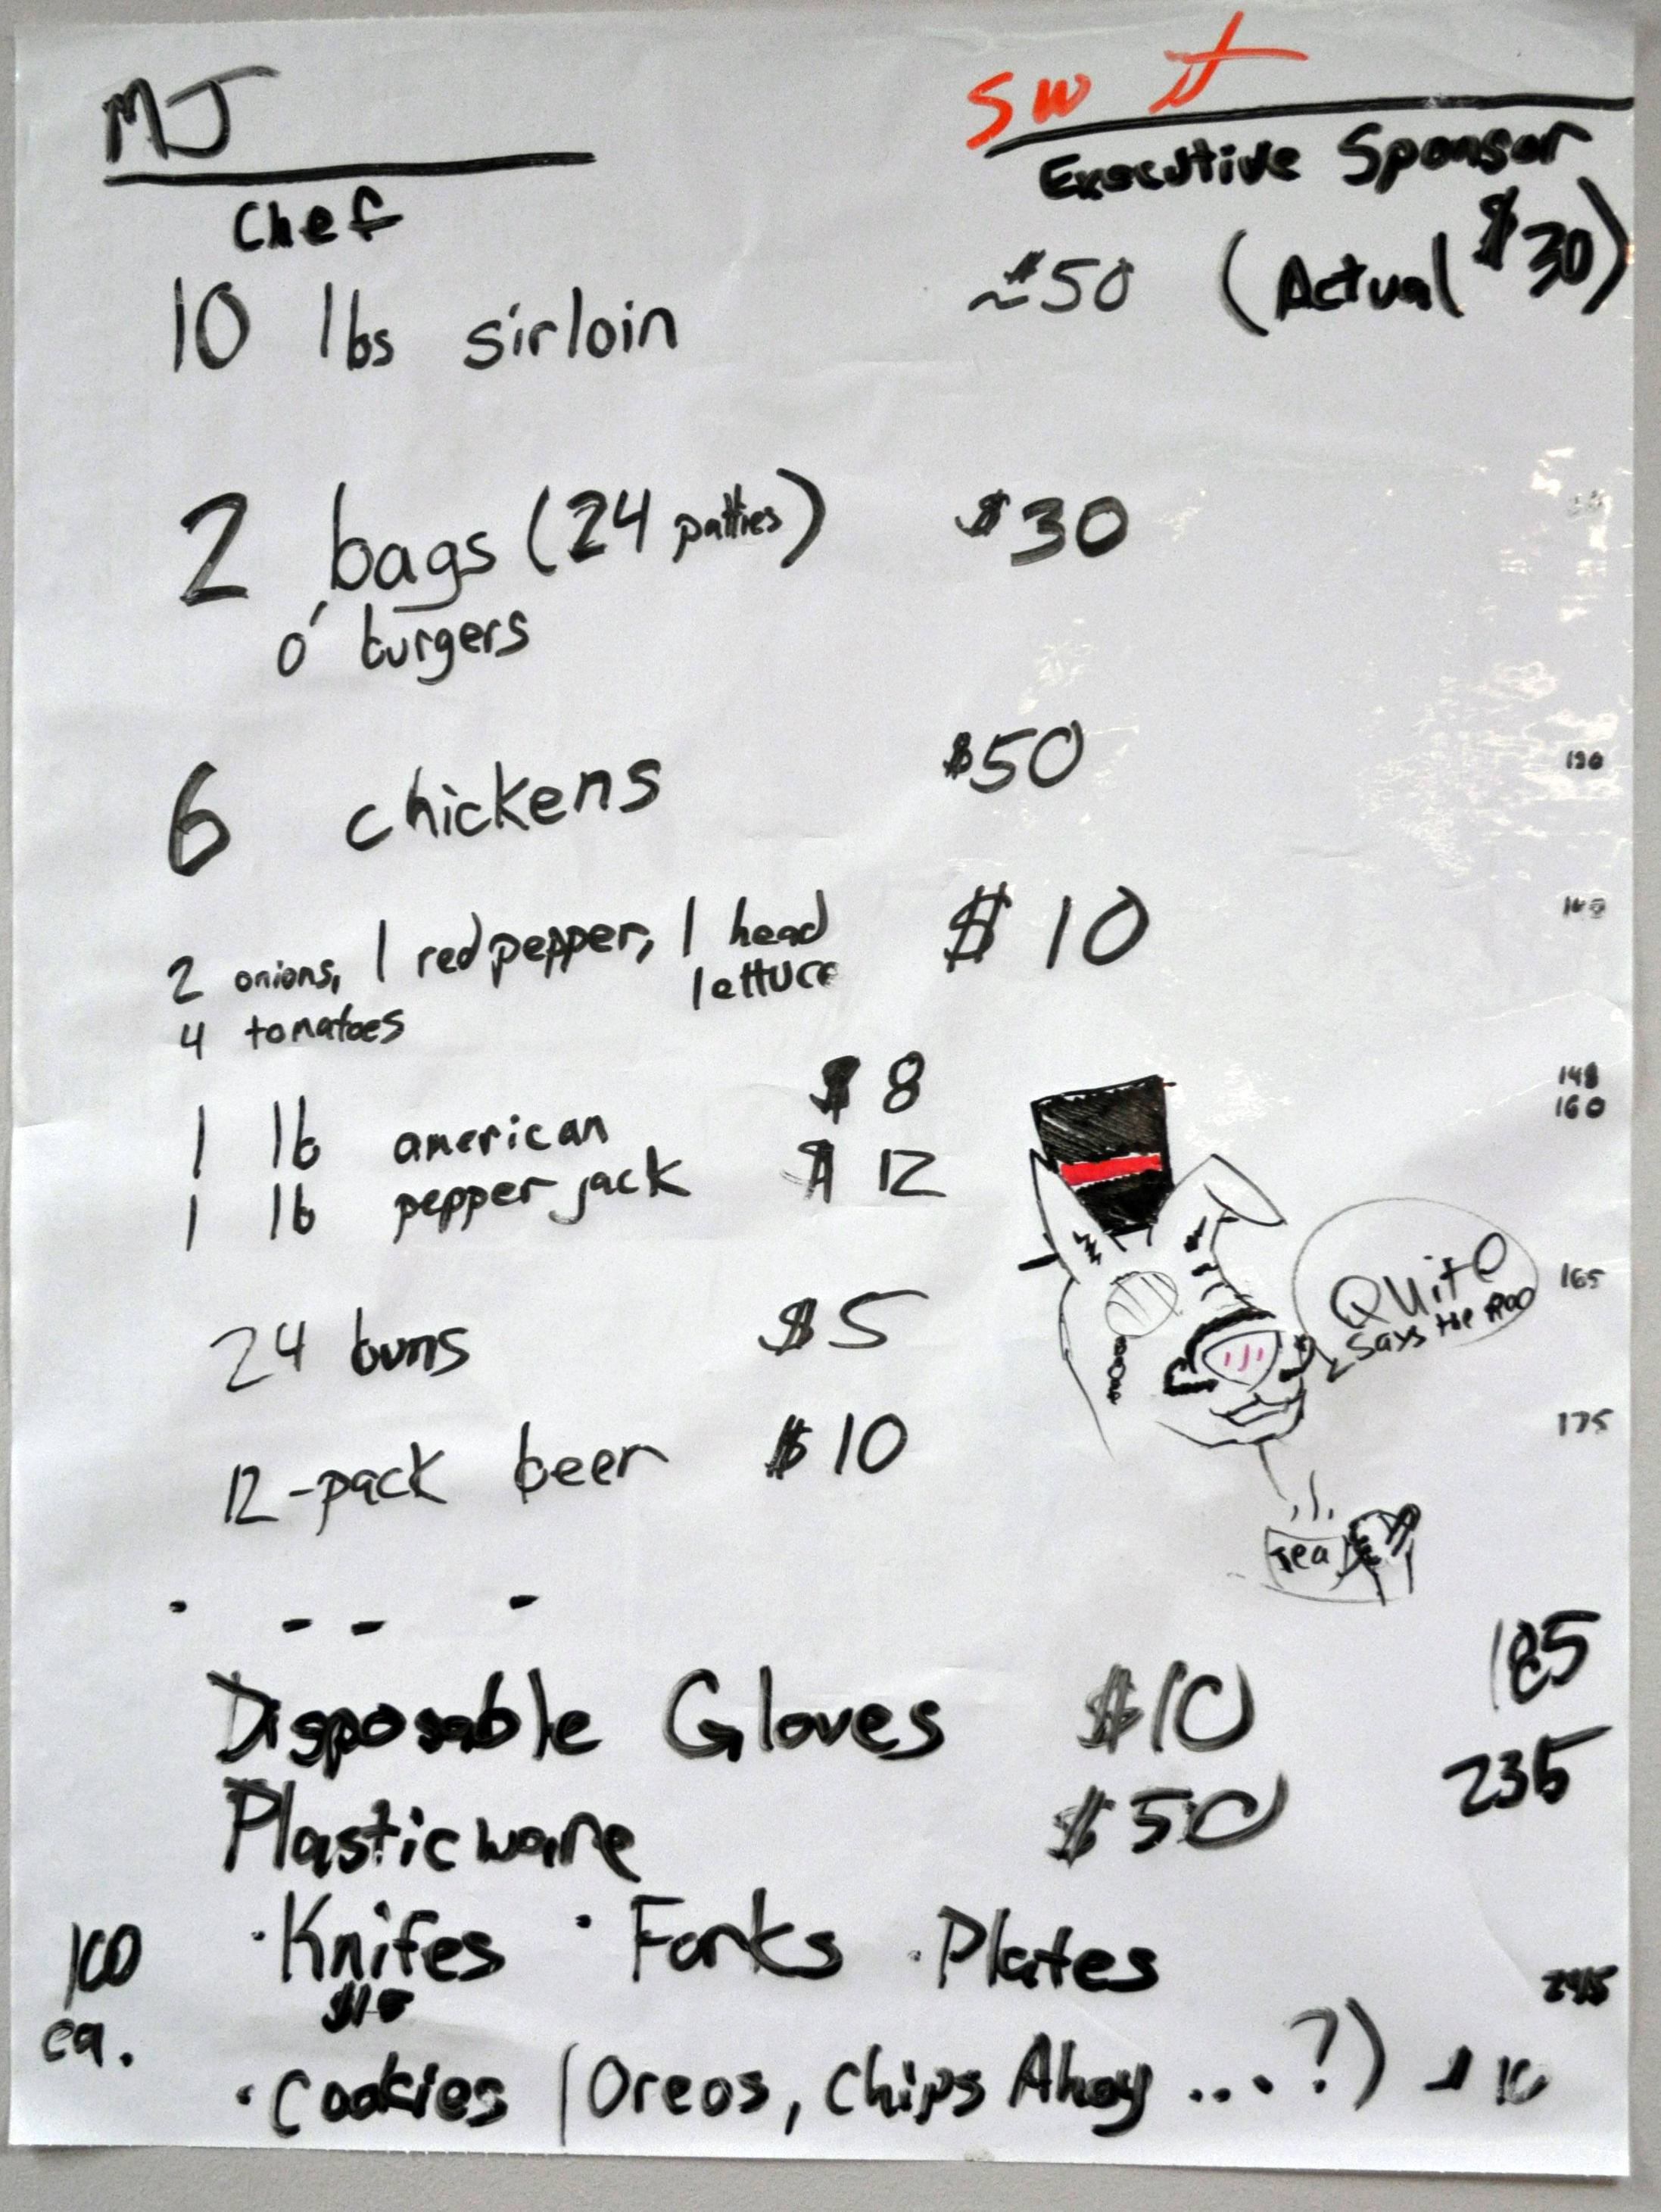 MJ
Chef
Executive Sponsor
10 lbs sirloin ~$50 (Actual $30)
2 bags (24 patties) $30
o' burgers
6 chickens $50 130
2 onions, 1 red pepper, 1 head lettuce $10 140
4 tomatoes
1 lb american $8 148
1 lb pepper jack $12 160
24 buns $5 165
QUitE
says the ROO
12-pack beer $10 175
Tea
Disposable Gloves $10 185
Plasticware $50 235
100 ea. · Knifes · Forks · Plates
245
· Cookies (Oreos, Chips Ahoy ...?) $10